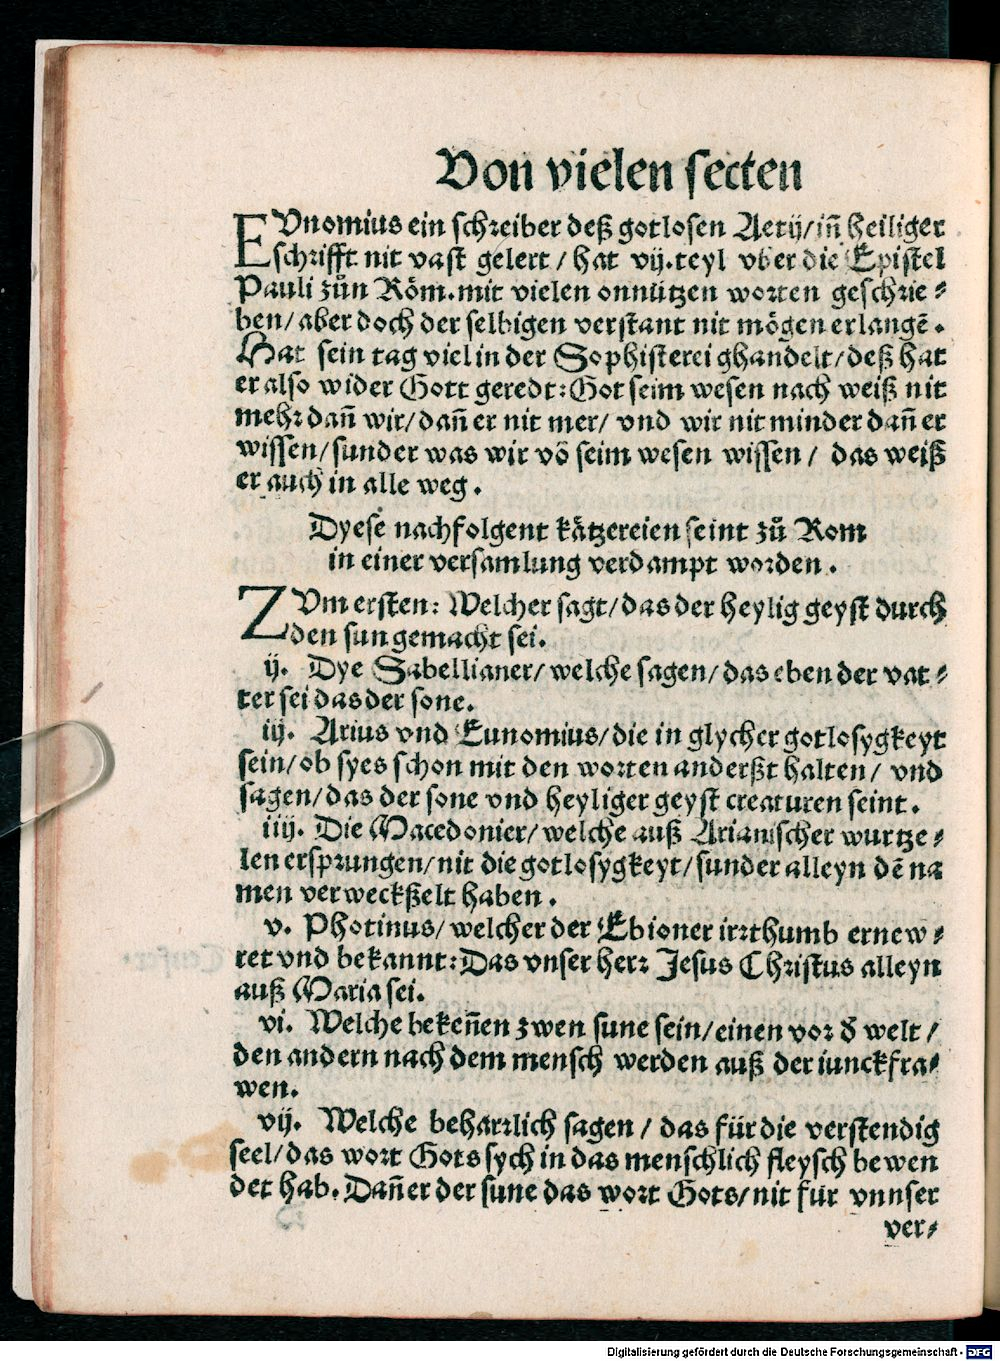 Von vielen secten
EVnomius ein schreiber deß gotlosen Aetij/ jñ heiliger
schrifft nit vast gelert / hat vij.teyl vber die Epistel
Pauli zůn Röm.mit vielen onnützen worten geschrie⸗
ben/ aber doch der selbigen verstant nit mögen erlangē.
Hat sein tag viel in der Sophisterei ghandelt/ deß hat
er also wider Gott geredt: Got seim wesen nach weiß nit
mehr dañ wir/ dañ er nit mer/ vnd wir nit minder dañ er
wissen/ sunder was wir võ seim wesen wissen / das weiß
er auch in alle weg.
Dyese nachfolgent kätzereien seint zů Rom
in einer versamlung verdampt worden.
ZVm ersten: Welcher sagt/ das der heylig geyst durch
den sun gemacht sei.
ij. Dye Sabellianer/ welche sagen/ das eben der vat⸗
ter sei das der sone.
iij. Arius vnd Eunomius/ die in glycher gotlosygkeyt
sein/ ob syes schon mit den worten anderßt halten / vnd
sagen/ das der sone vnd heyliger geyst creaturen seint.
iiij. Die Macedonier/ welche auß Arianischer wurtze⸗
len ersprungen/ nit die gotlosygkeyt/ sunder alleyn dē na
men verweckßelt haben.
v. Photinus/ welcher der Ebioner irrthumb ernew⸗
ret vnd bekannt: Das vnser herr Jesus Christus alleyn
auß Maria sei.
vi. Welche bekeñen zwen sune sein/ einen vor ď welt /
den andern nach dem mensch werden auß der iunckfra⸗
wen.
vij. Welche beharrlich sagen / das für die verstendig
seel/ das wort Gots sych in das menschlich fleysch bewen
det hab. Dañ er der sune das wort Gots/ nit für vnnser
ver⸗
Digitalisierung gefördert durch die Deutsche Forschungsgemeinschaft - DFG